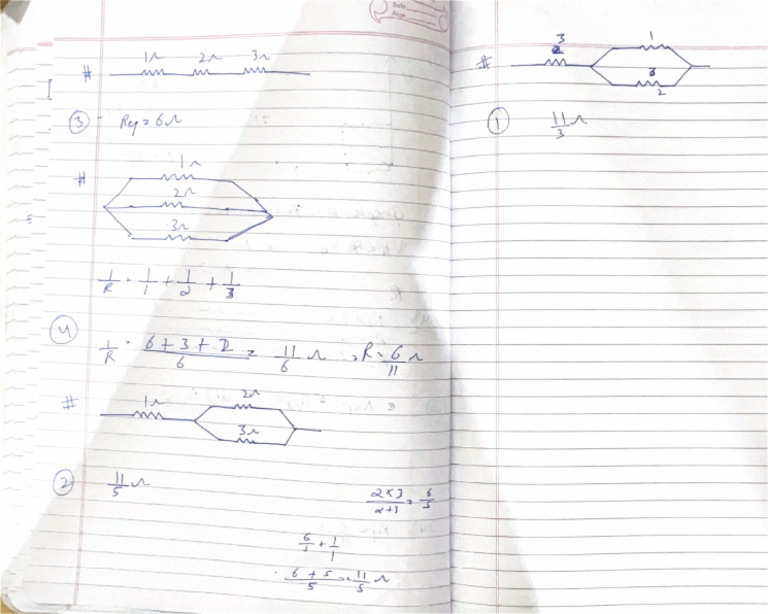 Date
Page
# 1Ω 2Ω 3Ω
③ Req = 6Ω
# 1Ω
2Ω
3Ω
1/R = 1/1 + 1/2 + 1/3
④ 1/R = (6+3+2)/6 = 11/6 Ω , R = 6/11 Ω
# 1Ω 2Ω
3Ω
② 11/5 Ω
(2×3)/(2+3) = 6/5
6/5 + 1/1
(6+5)/5 = 11/5 Ω
# 3 1
2
① 11/3 Ω